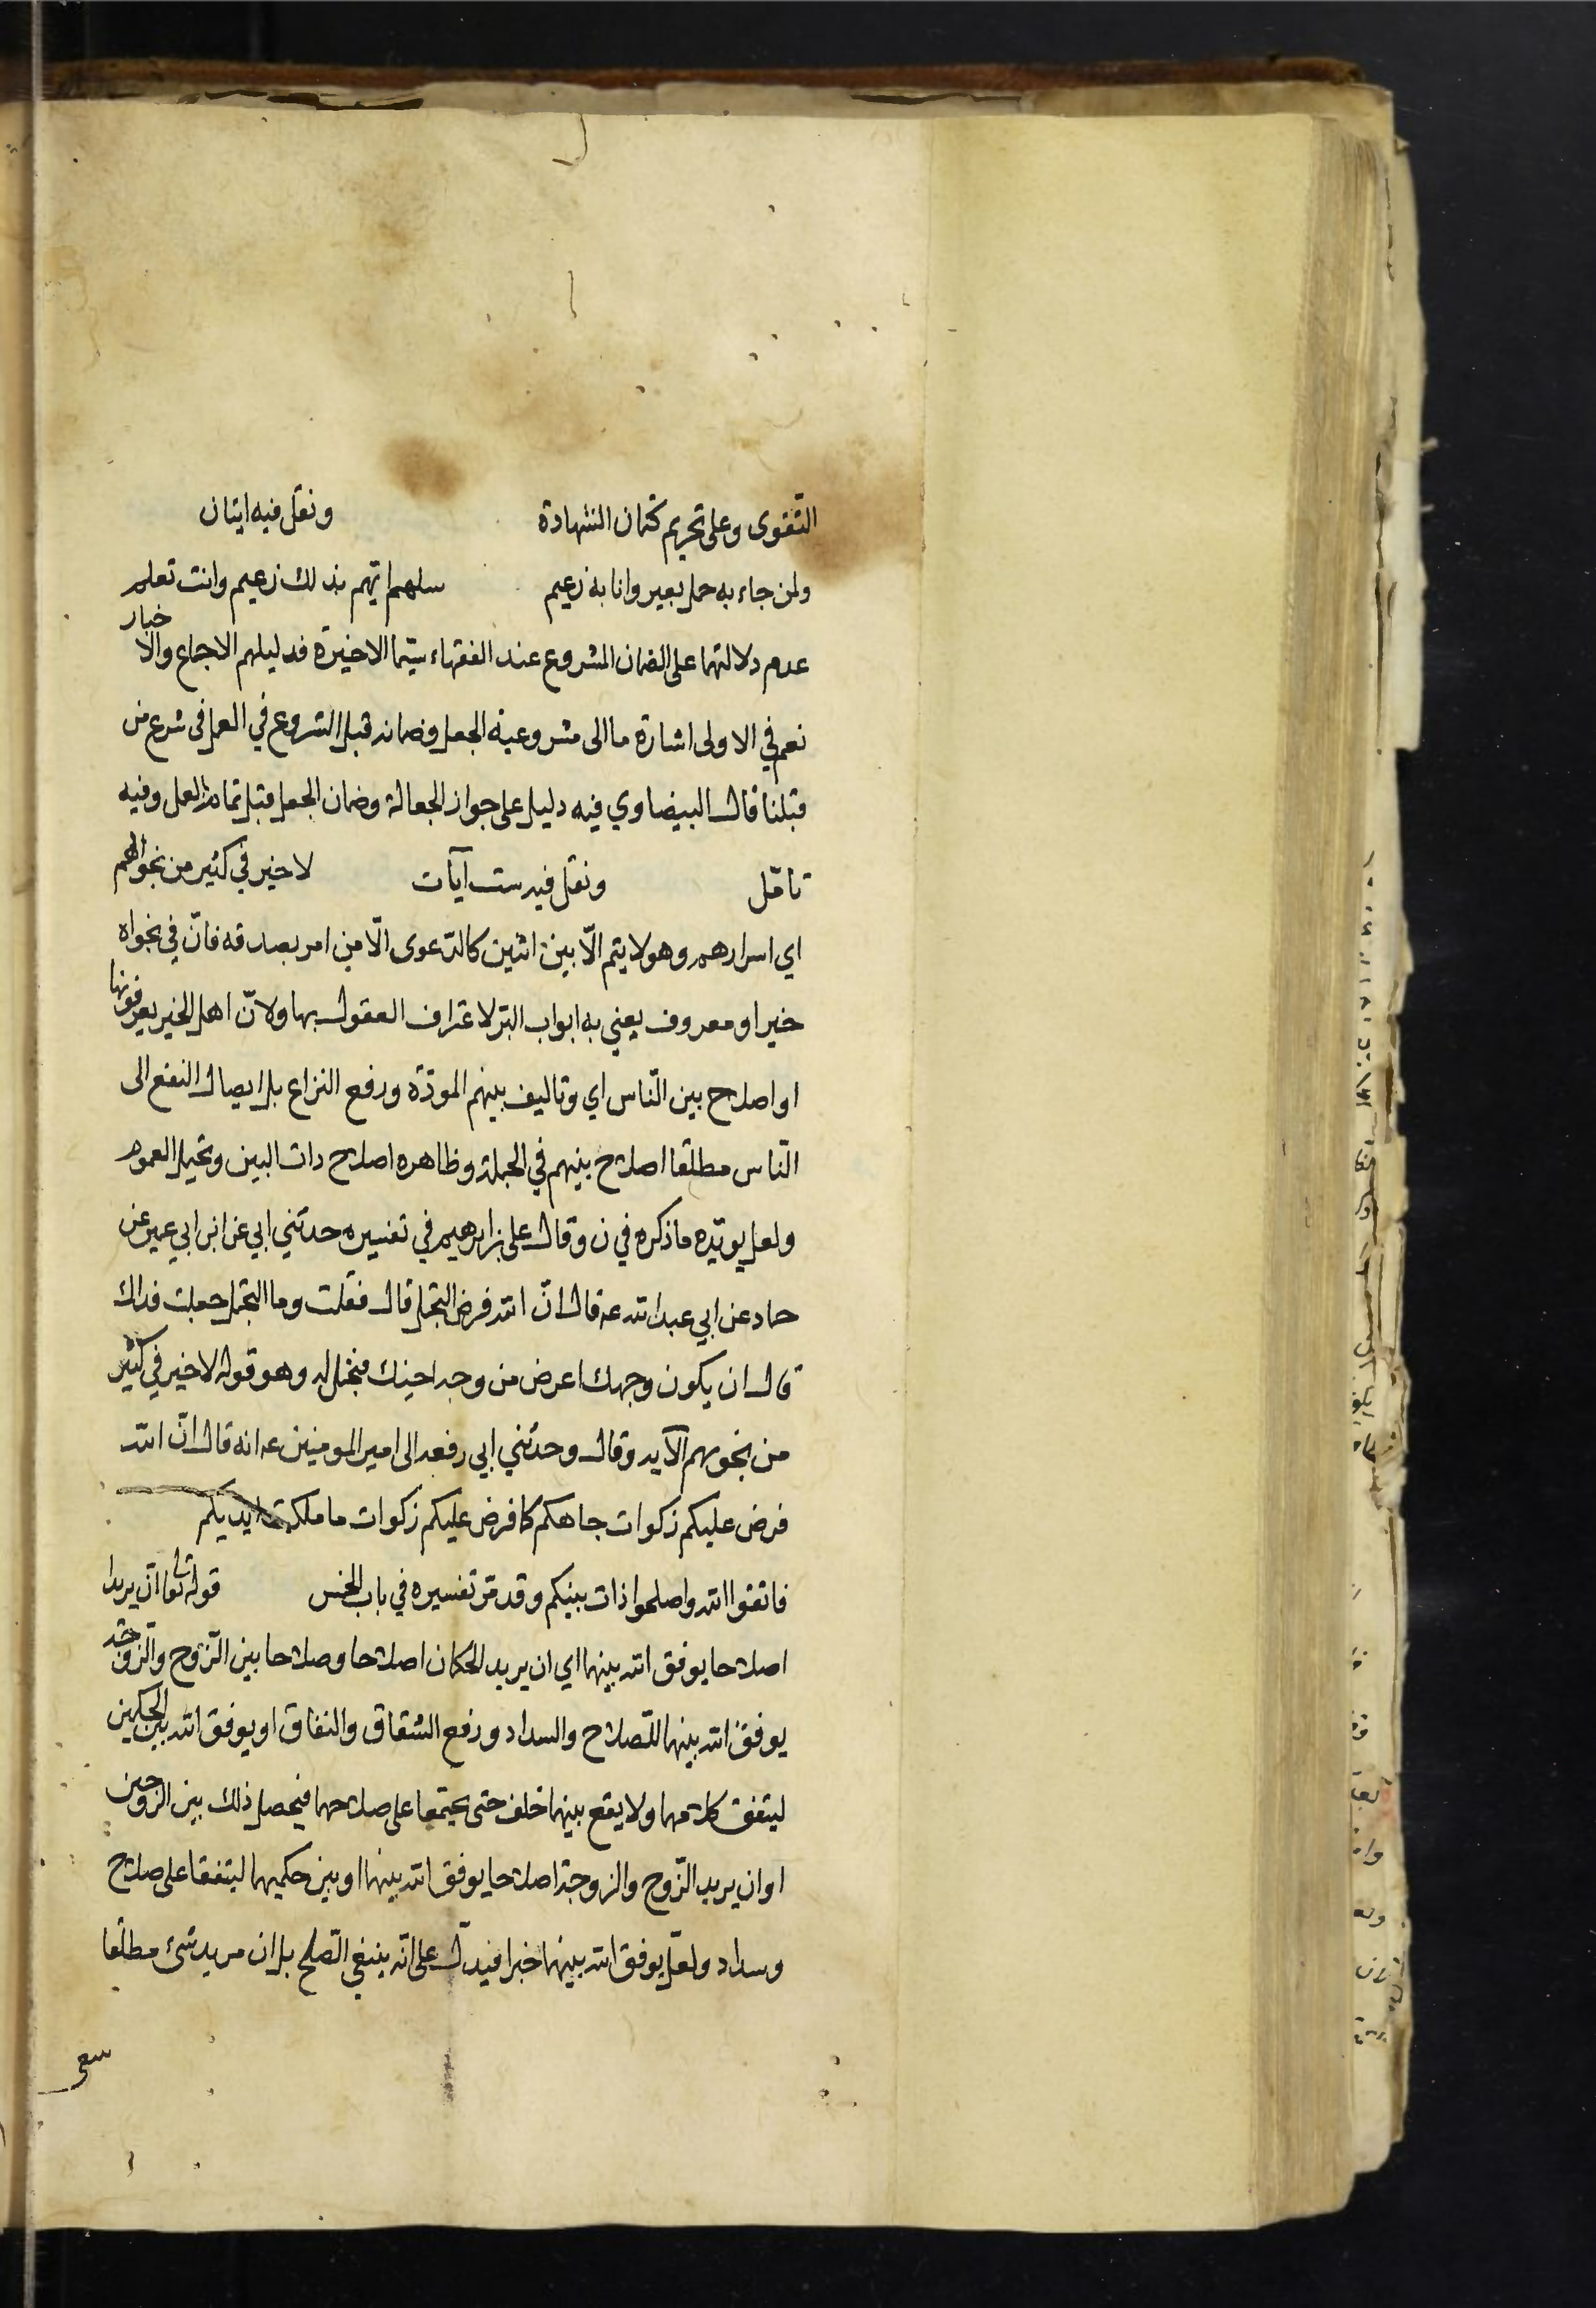 التّقوى وعلى تحريم كتمان الشهادة ونقل فيه ايتان
ولمن جاء به حمل بعير وانا به زعيم سلهم ايّهم بذلك زعيم وانت تعلم
عدم دلالتهما على الضمان المشروع عند الفقهاء سيّما الاخيرة فدليلهم الاجماع والاخبار
نعم في الاولى اشارة ما الى مشروعية الجعل وضمانه قبل الشروع في العمل في شرع من
قبلنا قال البيضاوي فيه دليل على جواز الجعالة وضمان الجعل قبل تمام العمل وفيه
تامّل ونقل فيه ست آيات لا خير في كثير من نجواهم
اي اسرارهم وهو لا يتم الّا بين اثنين كالدّعوى الّا من امر بصدقه فانّ في نجواه
خيرا ومعروف يعني به ابواب البرّ لاعتراف العقول بها ولانّ اهل الخير يعرفونها
او اصلاح بين النّاس اي وتاليف بينهم المودّة ورفع النزاع بل ايصال النفع الى
النّاس مطلقا اصلاح بينهم في الجملة وظاهره اصلاح ذات البين ويحتمل العموم
ولعل يويّده ما ذكره في ن وقال على بن ابرهيم في تفسيره حدثني ابي عن ابن ابي عمير عن
حماد عن ابي عبد الله ع قال انّ الله فرض التجمل قال فقلت وما التجمل جعلت فداك
قال ان يكون وجهك اعرض من وجه اخيك فتجمل له وهو قوله لا خير في كثير
من نجويهم الآيه وقال وحدثني ابي رفعه الى امير المومنين ع انه قال انّ الله
فرض عليكم زكوات جاهكم كما فرض عليكم زكوات ما ملكت ايديكم
فاتقوا الله واصلحوا ذات بينكم وقد مرّ تفسيره في باب الخمس قوله تعا ان يريدا
اصلاحا يوفق الله بينهما اي ان يريد الحكمان اصلاحا وصلاحا بين الزّوج والزّوجة
يوفق الله بينهما للصلاح والسداد ورفع الشقاق والنفاق او يوفق الله بين الحكمين
ليتفق كلامهما ولا يقع بينهما خلف حتى يجتمعا على صلاحهما فيحصل ذلك بين الزوجين
او ان يريد الزّوج والزوجة اصلاحا يوفق الله بينهما او بين حكميهما ليتفقا على صلاح
وسداد ولعلّ يوفق الله بينهما خبرا فيدلّ على انّه ينبغي الصّلح بل ان مريد شئ مطلقا
سعى